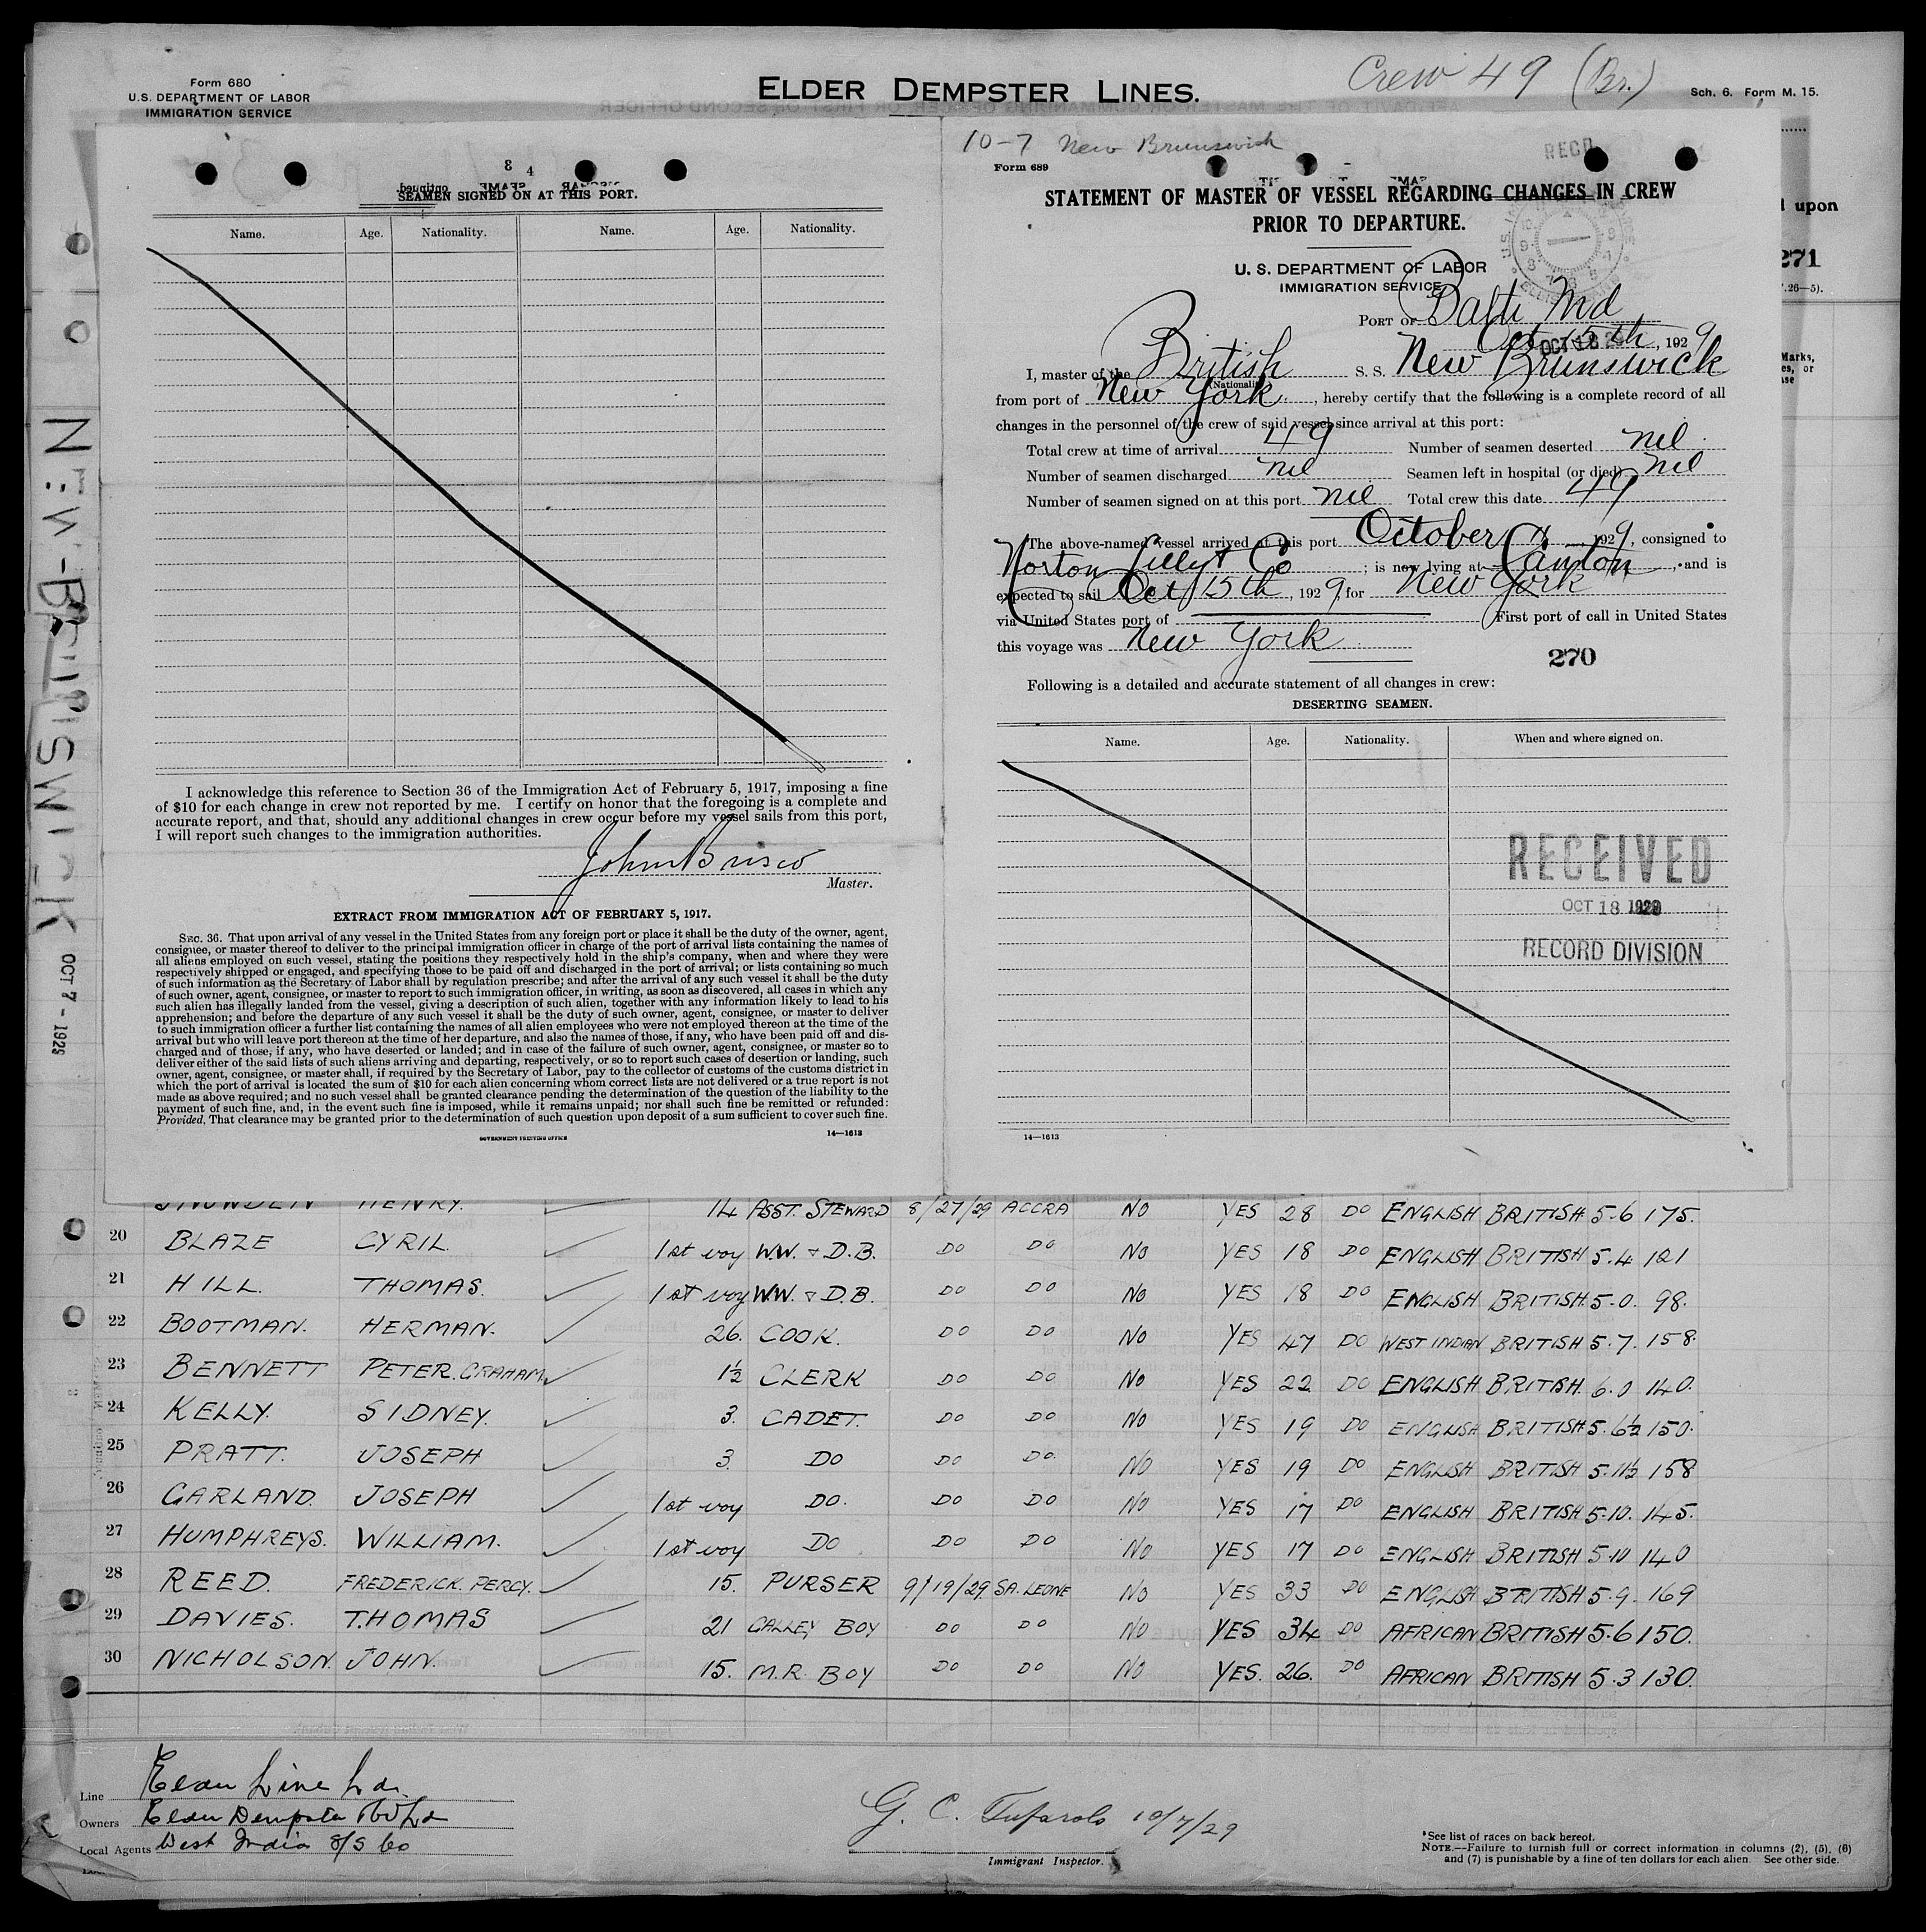 Form 680
U.S. DEPARTMENT OF LABOR
IMMIGRATION SERVICE
ELDER DEMPSTER LINES.
Crew 49 (Br.)
Sch. 6. Form M. 15.
8 4
SEAMEN SIGNED ON AT THIS PORT.
Name. Age. Nationality. Name. Age. Nationality.
I acknowledge this reference to Section 36 of the Immigration Act of February 5, 1917, imposing a fine
of $10 for each change in crew not reported by me. I certify on honor that the foregoing is a complete and
accurate report, and that, should any additional changes in crew occur before my vessel sails from this port,
I will report such changes to the immigration authorities.
John Brisco
Master.
EXTRACT FROM IMMIGRATION ACT OF FEBRUARY 5, 1917.
SEC. 36. That upon arrival of any vessel in the United States from any foreign port or place it shall be the duty of the owner, agent,
consignee, or master thereof to deliver to the principal immigration officer in charge of the port of arrival lists containing the names of
all aliens employed on such vessel, stating the positions they respectively hold in the ship's company, when and where they were
respectively shipped or engaged, and specifying those to be paid off and discharged in the port of arrival; or lists containing so much
of such information as the Secretary of Labor shall by regulation prescribe; and after the arrival of any such vessel it shall be the duty
of such owner, agent, consignee, or master to report to such immigration officer, in writing, as soon as discovered, all cases in which any
such alien has illegally landed from the vessel, giving a description of such alien, together with any information likely to lead to his
apprehension; and before the departure of any such vessel it shall be the duty of such owner, agent, consignee, or master to deliver
to such immigration officer a further list containing the names of all alien employees who were not employed thereon at the time of the
arrival but who will leave port thereon at the time of her departure, and also the names of those, if any, who have been paid off and dis-
charged and of those, if any, who have deserted or landed; and in case of the failure of such owner, agent, consignee, or master so to
deliver either of the said lists of such aliens arriving and departing, respectively, or so to report such cases of desertion or landing, such
owner, agent, consignee, or master shall, if required by the Secretary of Labor, pay to the collector of customs of the customs district in
which the port of arrival is located the sum of $10 for each alien concerning whom correct lists are not delivered or a true report is not
made as above required; and no such vessel shall be granted clearance pending the determination of the question of the liability to the
payment of such fine, and, in the event such fine is imposed, while it remains unpaid; nor shall such fine be remitted or refunded:
Provided, That clearance may be granted prior to the determination of such question upon deposit of a sum sufficient to cover such fine.
GOVERNMENT PRINTING OFFICE 14—1613
10-7 New Brunswick
Form 689
RECD
STATEMENT OF MASTER OF VESSEL REGARDING CHANGES IN CREW
PRIOR TO DEPARTURE.
U. S. DEPARTMENT OF LABOR
IMMIGRATION SERVICE
PORT OF Balti Md
Oct 15th, 1929
OCT 18
I, master of the British S. S. New Brunswick
(Nationality)
from port of New York, hereby certify that the following is a complete record of all
changes in the personnel of the crew of said vessel since arrival at this port:
Total crew at time of arrival 49 Number of seamen deserted nil
Number of seamen discharged nil Seamen left in hospital (or died) nil
Number of seamen signed on at this port nil Total crew this date 49
The above-named vessel arrived at this port October, 1929, consigned to
Norton Lilly & Co; is now lying at Canton, and is
expected to sail Oct 15th, 1929, for New York
via United States port of First port of call in United States
this voyage was New York
270
Following is a detailed and accurate statement of all changes in crew:
DESERTING SEAMEN.
Name. Age. Nationality. When and where signed on.
RECEIVED
OCT 18 1929
RECORD DIVISION
14—1613
upon
271
26—5).
Marks,
es, or
NEW-BRUNSWICK OCT 7 - 1929
SNOWDEN HENRY. 14 ASST. STEWARD 8/27/29 ACCRA NO YES 28 DO ENGLISH BRITISH 5.6 175.
20 BLAZE CYRIL. 1st voy W.W. & D.B. DO DO NO YES 18 DO ENGLISH BRITISH 5.4 121
21 HILL. THOMAS. 1st voy W.W. & D.B. DO DO NO YES 18 DO ENGLISH BRITISH. 5.0. 98.
22 BOOTMAN. HERMAN. 26. COOK. DO DO NO YES 47 DO WEST INDIAN BRITISH 5.7. 158.
23 BENNETT PETER. GRAHAM 1½ CLERK DO DO NO YES 22 DO ENGLISH BRITISH. 6.0 140.
24 KELLY. SIDNEY. 3. CADET. DO DO NO YES 19 DO ENGLISH BRITISH 5.6½ 150.
25 PRATT. JOSEPH 3. DO DO DO. NO YES 19 DO ENGLISH BRITISH 5.11½ 158
26 GARLAND. JOSEPH 1st voy DO. DO DO NO YES 17 DO ENGLISH BRITISH 5.10. 145.
27 HUMPHREYS. WILLIAM. 1st voy DO DO DO NO YES 17 DO ENGLISH BRITISH 5.10 140
28 REED. FREDERICK. PERCY. 15. PURSER 9/19/29 SA. LEONE NO YES 33 DO ENGLISH BRITISH 5.9. 169
29 DAVIES. THOMAS 21 GALLEY BOY DO DO NO YES 34 DO AFRICAN BRITISH 5.6 150.
30 NICHOLSON. JOHN. 15. M.R. BOY DO DO NO YES. 26. DO AFRICAN BRITISH 5.3 130.
Line Elder Line Ld.
Owners Elder Dempster & Co Ld
Local Agents West India S/S Co
G. C. Tufarolo 10/7/29
Immigrant Inspector.
*See list of races on back hereof.
NOTE.—Failure to furnish full or correct information in columns (2), (5), (6)
and (7) is punishable by a fine of ten dollars for each alien. See other side.